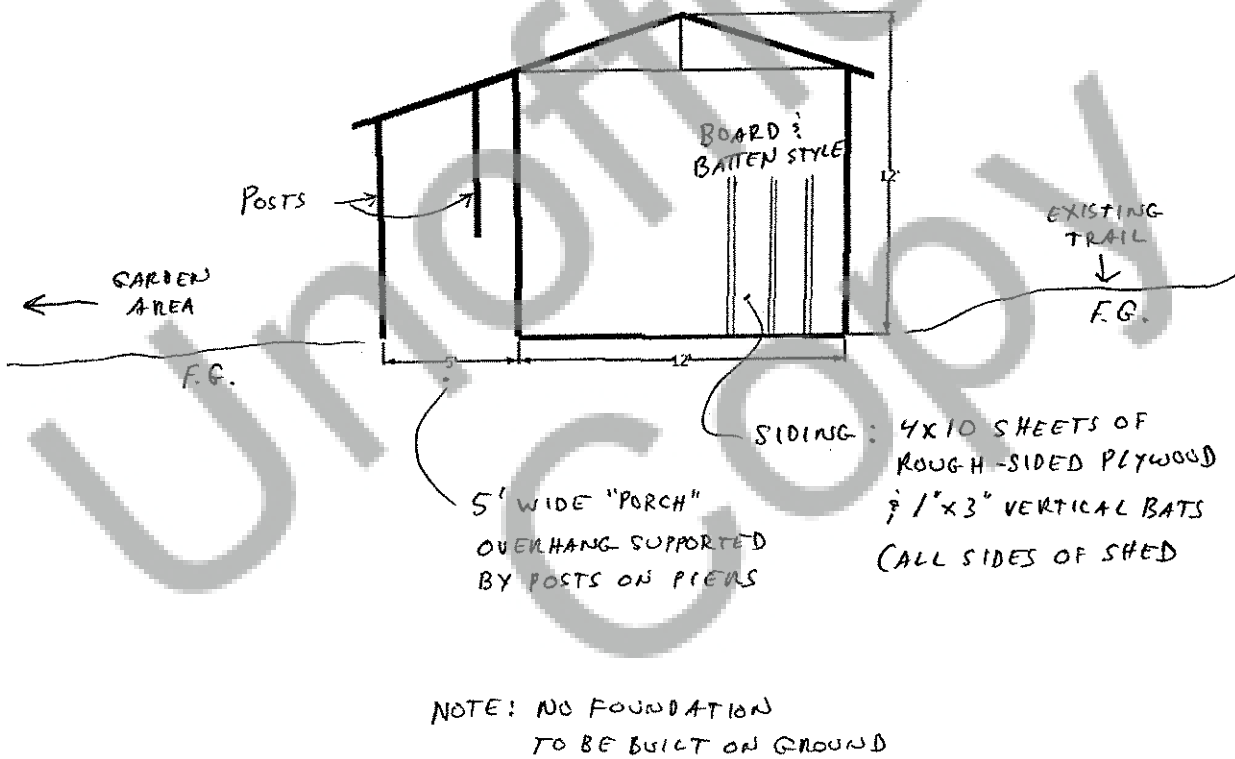 BOARD &
BATTEN STYLE
12'
POSTS
EXISTING
TRAIL
F.G.
GARDEN
AREA
F.G.
5'
12'
SIDING: 4X10 SHEETS OF
ROUGH-SIDED PLYWOOD
& 1"X3" VERTICAL BATS
(ALL SIDES OF SHED
5' WIDE "PORCH"
OVERHANG SUPPORTED
BY POSTS ON PIERS
NOTE: NO FOUNDATION
TO BE BUILT ON GROUND
Unofficial
Copy